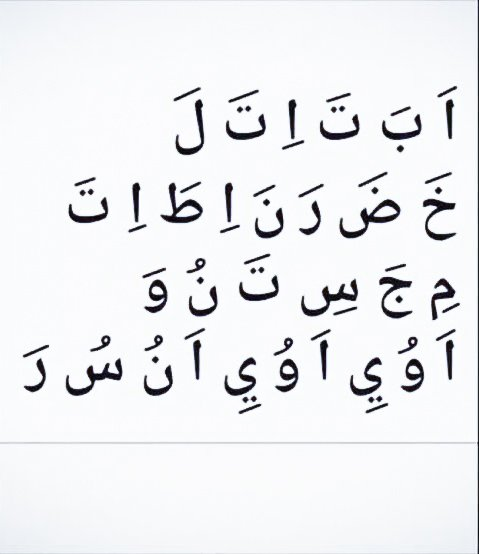 اَ بَ تَ اِ تَ لَ
خَ ضَ رَ نَ اِ طَ اِ تَ
مِ جَ سِ تَ نُ وَ
اَ وُ يِ اَ وُ يِ اَ نُ سُ رَ